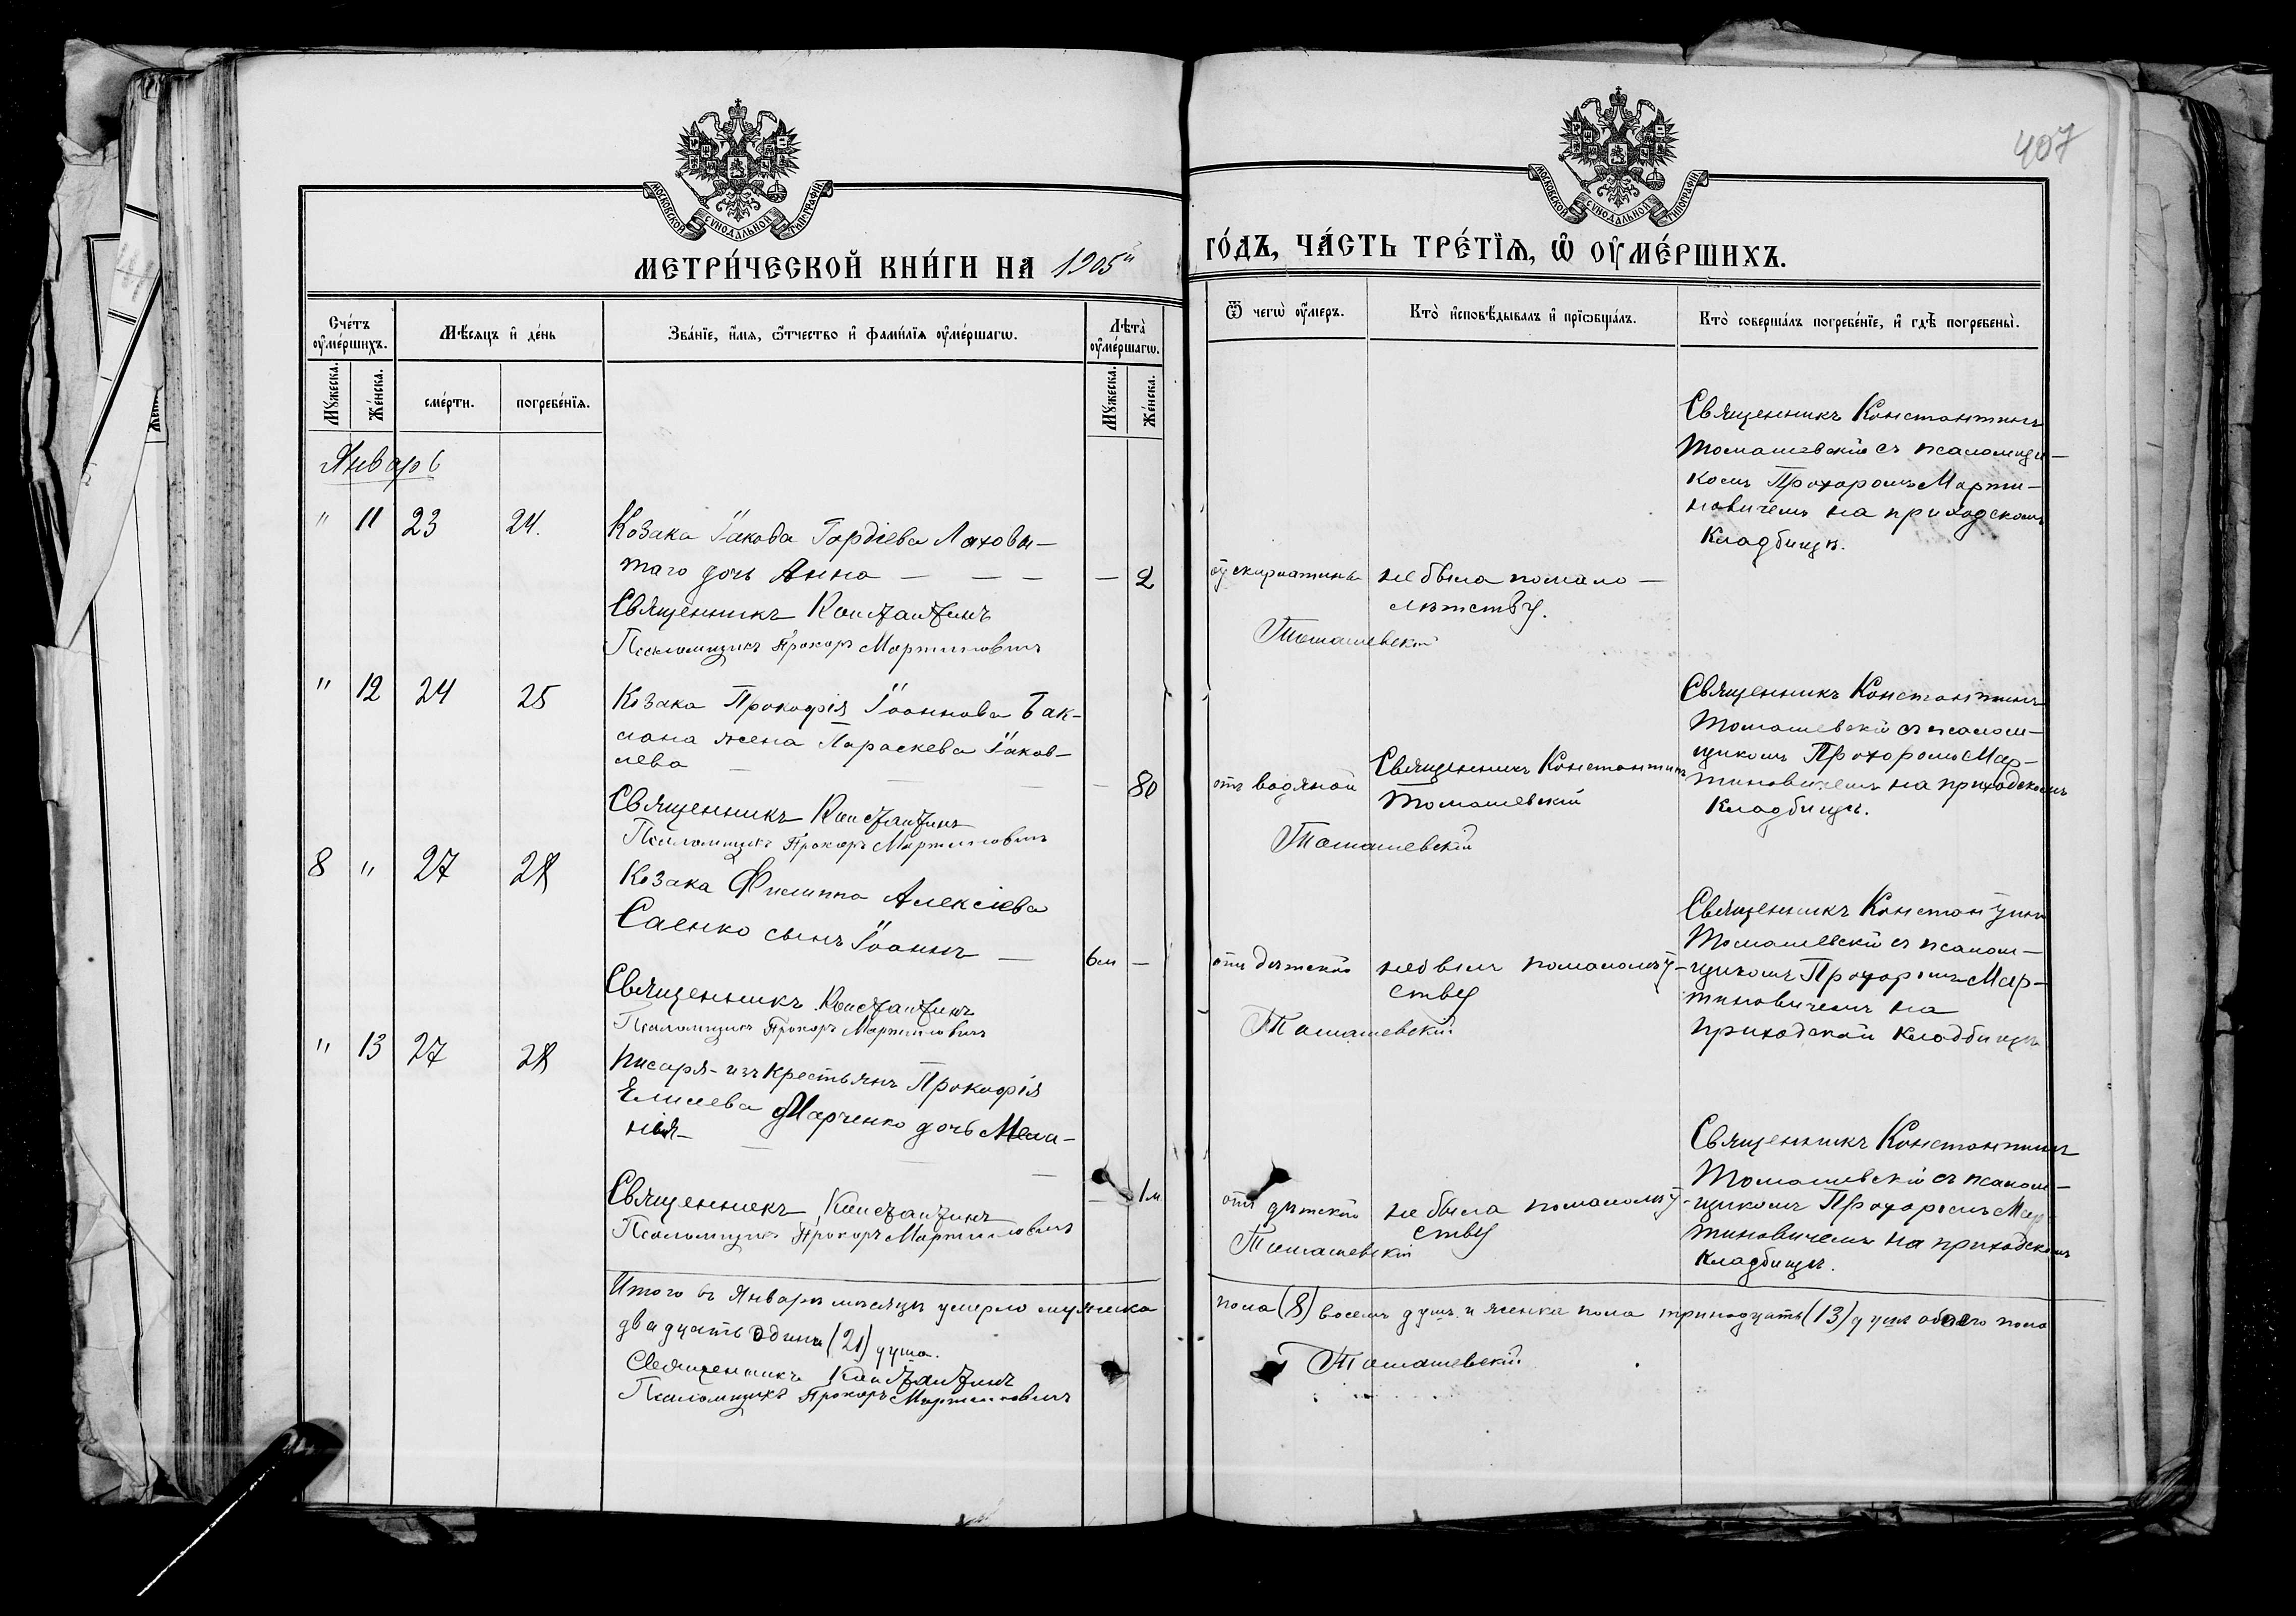 407
МОСКОВСКОЙ СУНОДАЛЬНОЙ ТИПОГРАФІИ
МОСКОВСКОЙ СУНОДАЛЬНОЙ ТИПОГРАФІИ
МЕТРИ́ЧЕСКОЙ КНИ́ГИ НА 1905й
ГО́ДЪ, ЧА́СТЬ ТРЕ́ТЇѦ, Ѡ ОУМЕ́РШИХЪ.
Сче́тъ оуме́ршихъ.
Мѣ́сяцъ и де́нь
Зва́нїе, и́мя, ѻ́тчество и фами́лїя оуме́ршагѡ.
Лѣта̀ оуме́ршагѡ.
Мꙋжеска. Же́нска.
сме́рти. погребе́нїѧ.
Мꙋжеска. Же́нска.
Ѿ чегѡ̀ оу́меръ.
Кто̀ и҆сповѣ́дывалъ и҆ прїѡбща́лъ.
Кто̀ соверша́лъ погребе́нїе, и҆ гдѣ̀ погребены̀.
Январь
" 11 23 24.
Козака Іакова Гордіева Лахова-
таго дочь Анна — — — — 2
Священникъ Константинъ
Псаломщикъ Прохоръ Мартиновичъ
отъ скарлатины
не была по мало-
лѣтству.
Томашевскій
Священникъ Константинъ
Томашевскій съ псаломщи-
комъ Прохоромъ Марти-
новичемъ на приходскомъ
кладбищѣ.
" 12 24 25
Козака Прокофія Іоаннова Бак-
лана жена Параскева Іаков-
лева — — — 80
Священникъ Константинъ
Псаломщикъ Прохоръ Мартиновичъ
отъ водяной
Священникъ Константинъ
Томашевскій
Томашевскій
Священникъ Константинъ
Томашевскій съ псалом-
щикомъ Прохоромъ Мар-
тиновичемъ на приходскомъ
кладбищѣ.
8 " 27 28
Козака Филиппа Алексіева
Саенко сынъ Іоаннъ — 6м —
Священникъ Константинъ
Псаломщикъ Прохоръ Мартиновичъ
отъ дѣтской
не былъ по малолѣт-
ству
Томашевскій
Священникъ Константинъ
Томашевскій съ псалом-
щикомъ Прохоромъ Мар-
тиновичемъ на
приходской кладбищѣ
" 13 27 28
Писаря-изъ крестьянъ Прокофія
Елисеева Марченко дочь Мела-
нія — — — — 1м
Священникъ Константинъ
Псаломщикъ Прохоръ Мартиновичъ
отъ дѣтской
не была по малолѣт-
ству
Томашевскій
Священникъ Константинъ
Томашевскій съ псалом-
щикомъ Прохоромъ Мар-
тиновичемъ на приходскомъ
кладбищѣ.
Итого въ Январѣ мѣсяцѣ умерло мужеска
пола (8) восемь душъ и женска пола тринадцать (13) душъ обоего пола
двадцать одинъ (21) душа.
Священникъ Константинъ
Томашевскій
Псаломщикъ Прохоръ Мартиновичъ